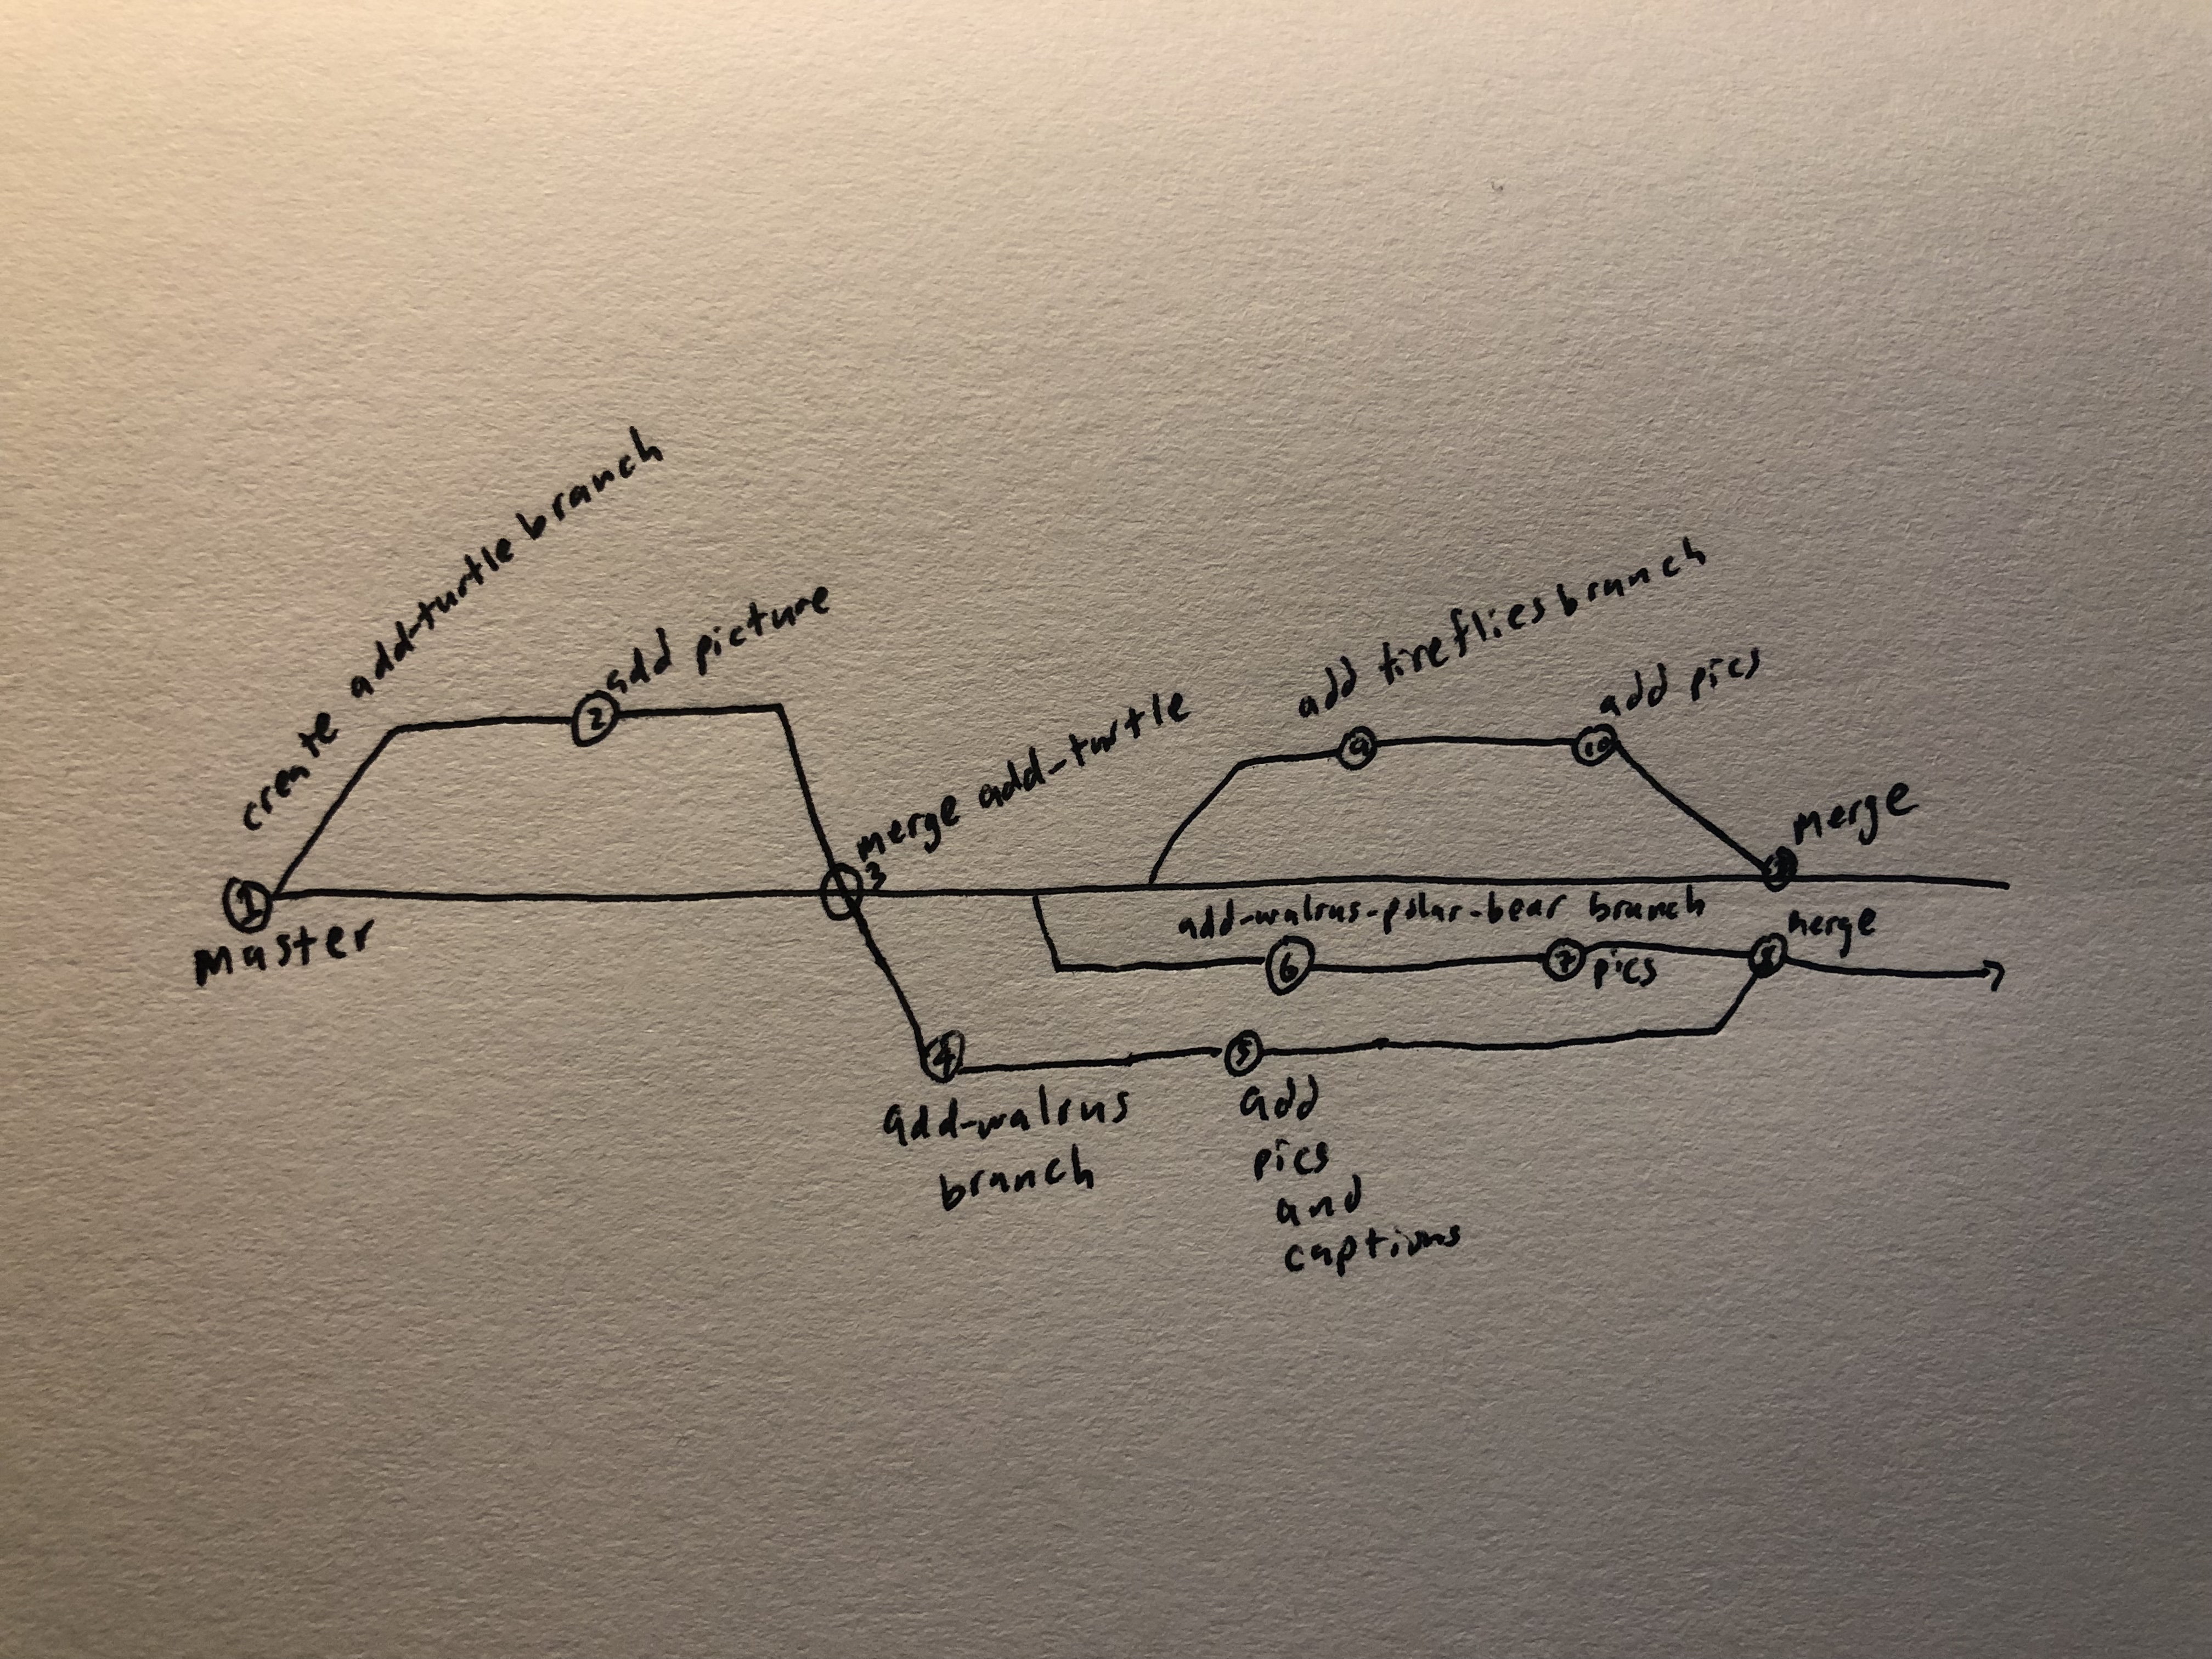 create add-turtle branch
1
Master
2
add picture
3
merge add-turtle
4
add-walrus
branch
5
add
pics
and
captions
add-walrus-polar-bear branch
6
7
pics
merge
add fireflies branch
9
10
add pics
Merge